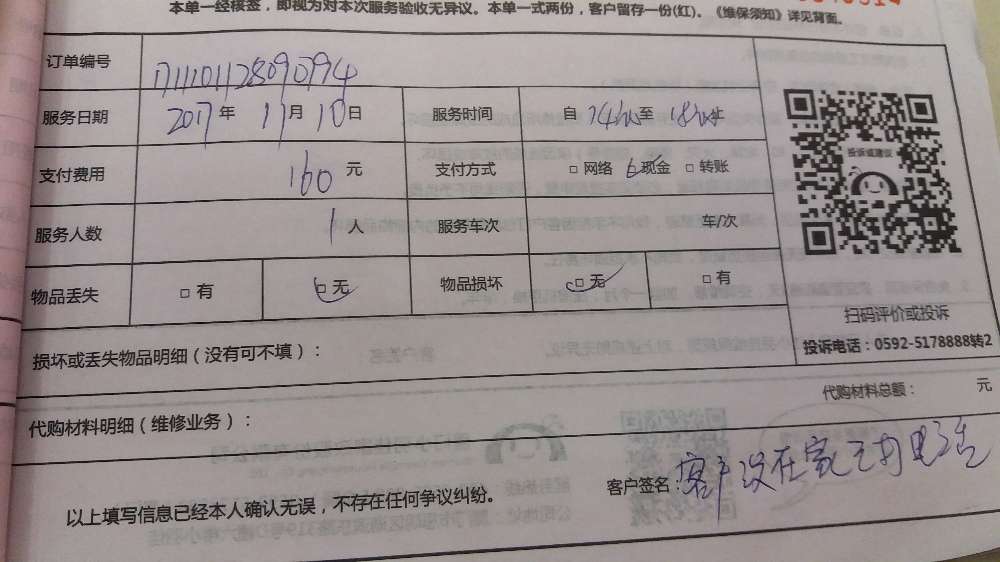 本单一经核签，即视为对本次服务验收无异议。本单一式两份，客户留存一份(红)。《维保须知》详见背面。
订单编号 1711101128090794
服务日期 2017年 11月 10日 服务时间 自 14:00 至 18:00 止
支付费用 160 元 支付方式 □ 网络 现金 □ 转账
服务人数 1 人 服务车次 车/次
物品丢失 □ 有 □ 无 物品损坏 □ 无 □ 有
投诉或建议
扫码评价或投诉
投诉电话：0592-5178888转2
损坏或丢失物品明细（没有可不填）：
代购材料明细（维修业务）： 代购材料总额： 元
以上填写信息已经本人确认无误，不存在任何争议纠纷。 客户签名：客户没在家 电话